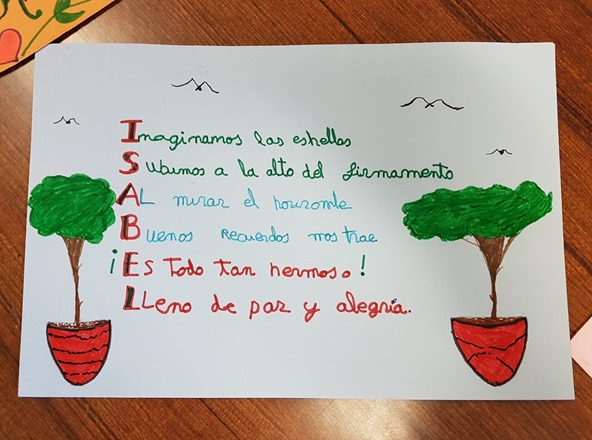 Imaginamos las estrellas
Subimos a la alto del firmamento
AL mirar el horizonte
Buenos Recuerdos nos trae
¡Es Todo tan hermoso!
LLeno de paz y alegría.